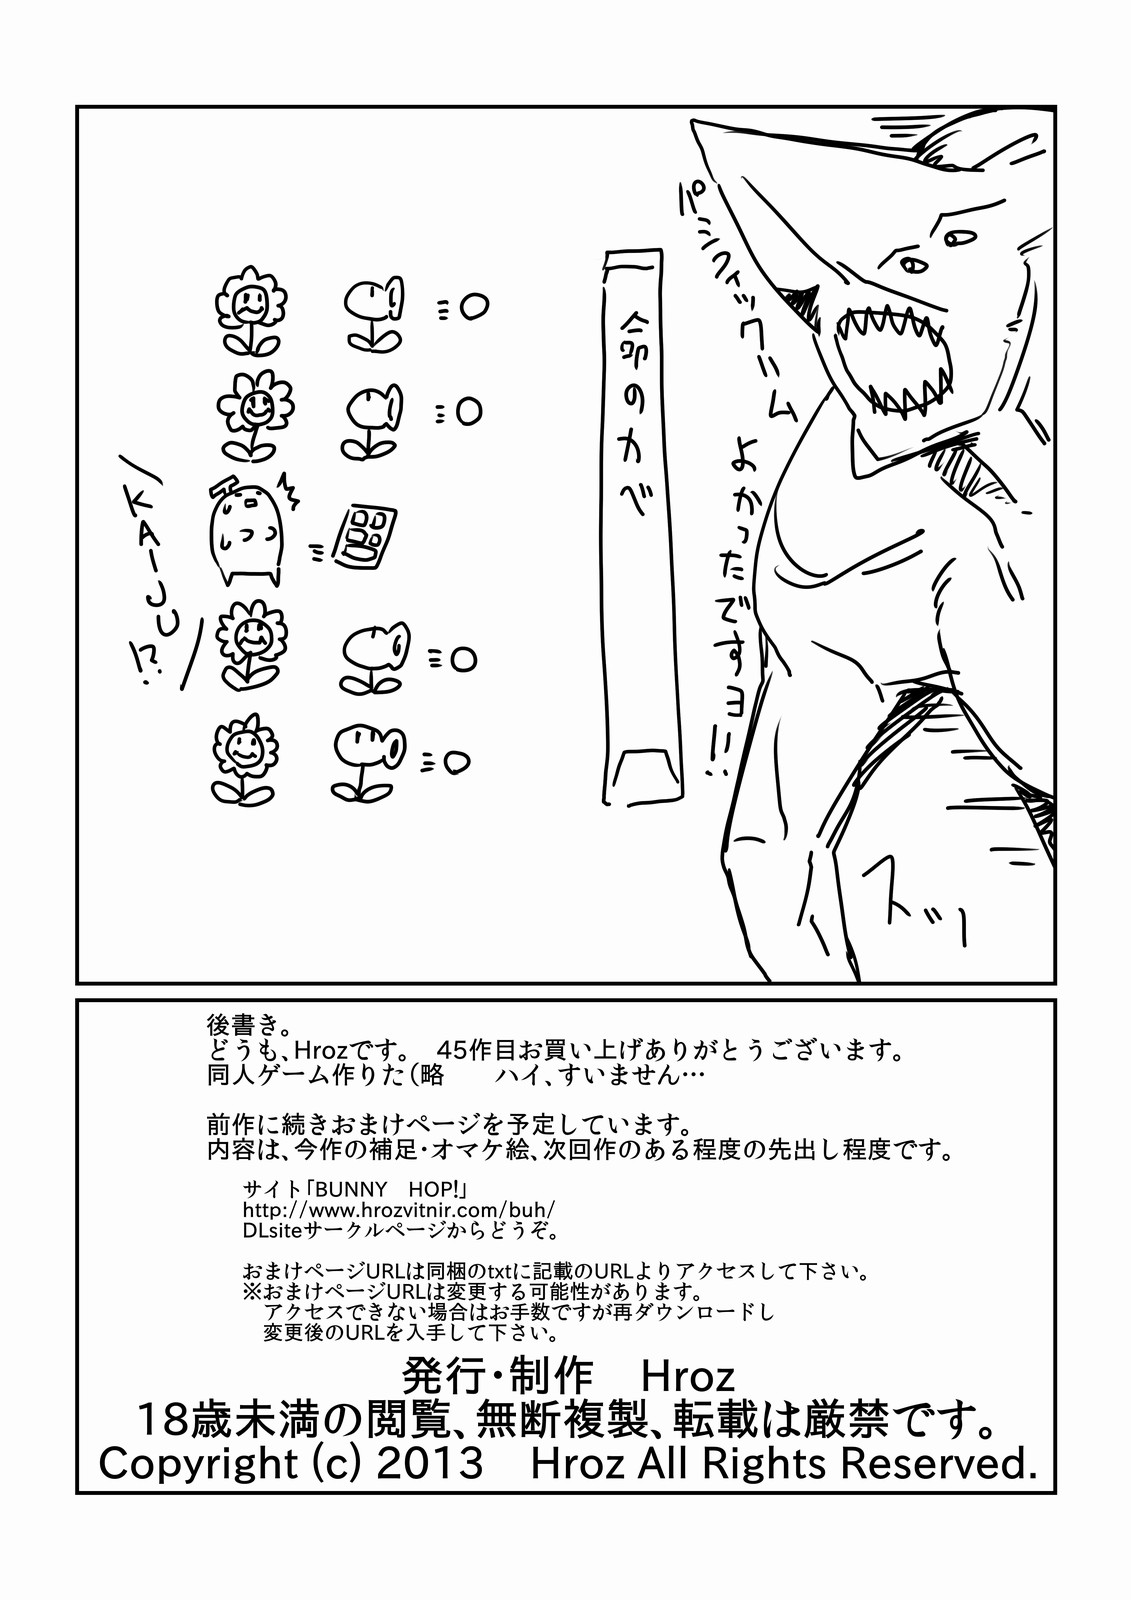 パシフィックリム
よかったですヨ!!
命のカベ
KAIJU!?
ズッ
後書き。
どうも、Hrozです。　45作目お買い上げありがとうございます。
同人ゲーム作りた（略　　ハイ、すいません…
前作に続きおまけページを予定しています。
内容は、今作の補足・オマケ絵、次回作のある程度の先出し程度です。
サイト「BUNNY　HOP!」
http://www.hrozvitnir.com/buh/
DLsiteサークルページからどうぞ。
おまけページURLは同梱のtxtに記載のURLよりアクセスして下さい。
※おまけページURLは変更する可能性があります。
アクセスできない場合はお手数ですが再ダウンロードし
変更後のURLを入手して下さい。
発行・制作　Hroz
18歳未満の閲覧、無断複製、転載は厳禁です。
Copyright (c) 2013　Hroz All Rights Reserved.